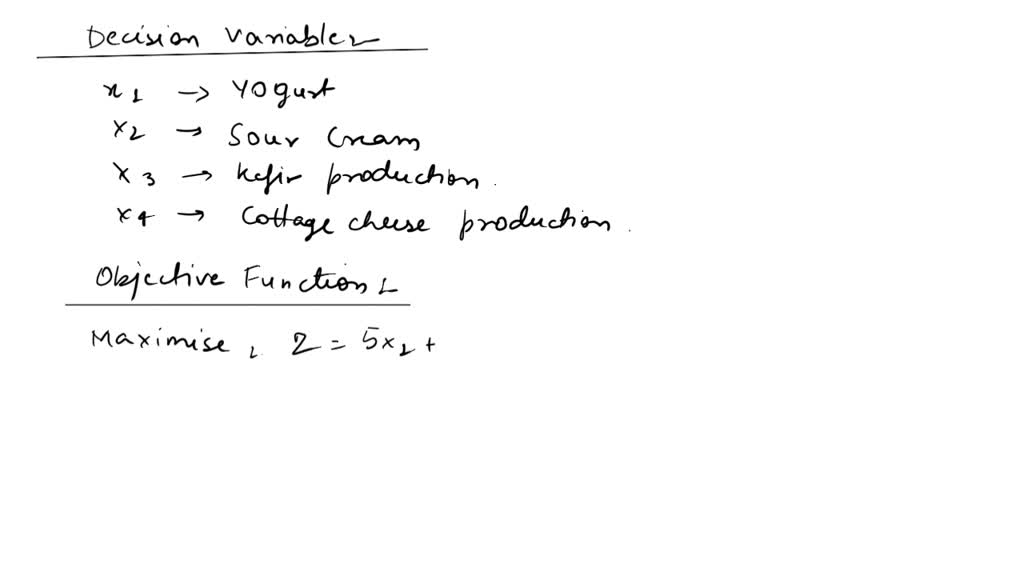 Decision Variables
x1 → Yogurt
x2 → Sour Cream
x3 → Kefir production.
x4 → Cottage cheese production.
Objective Function:
Maximise, Z = 5x1 +